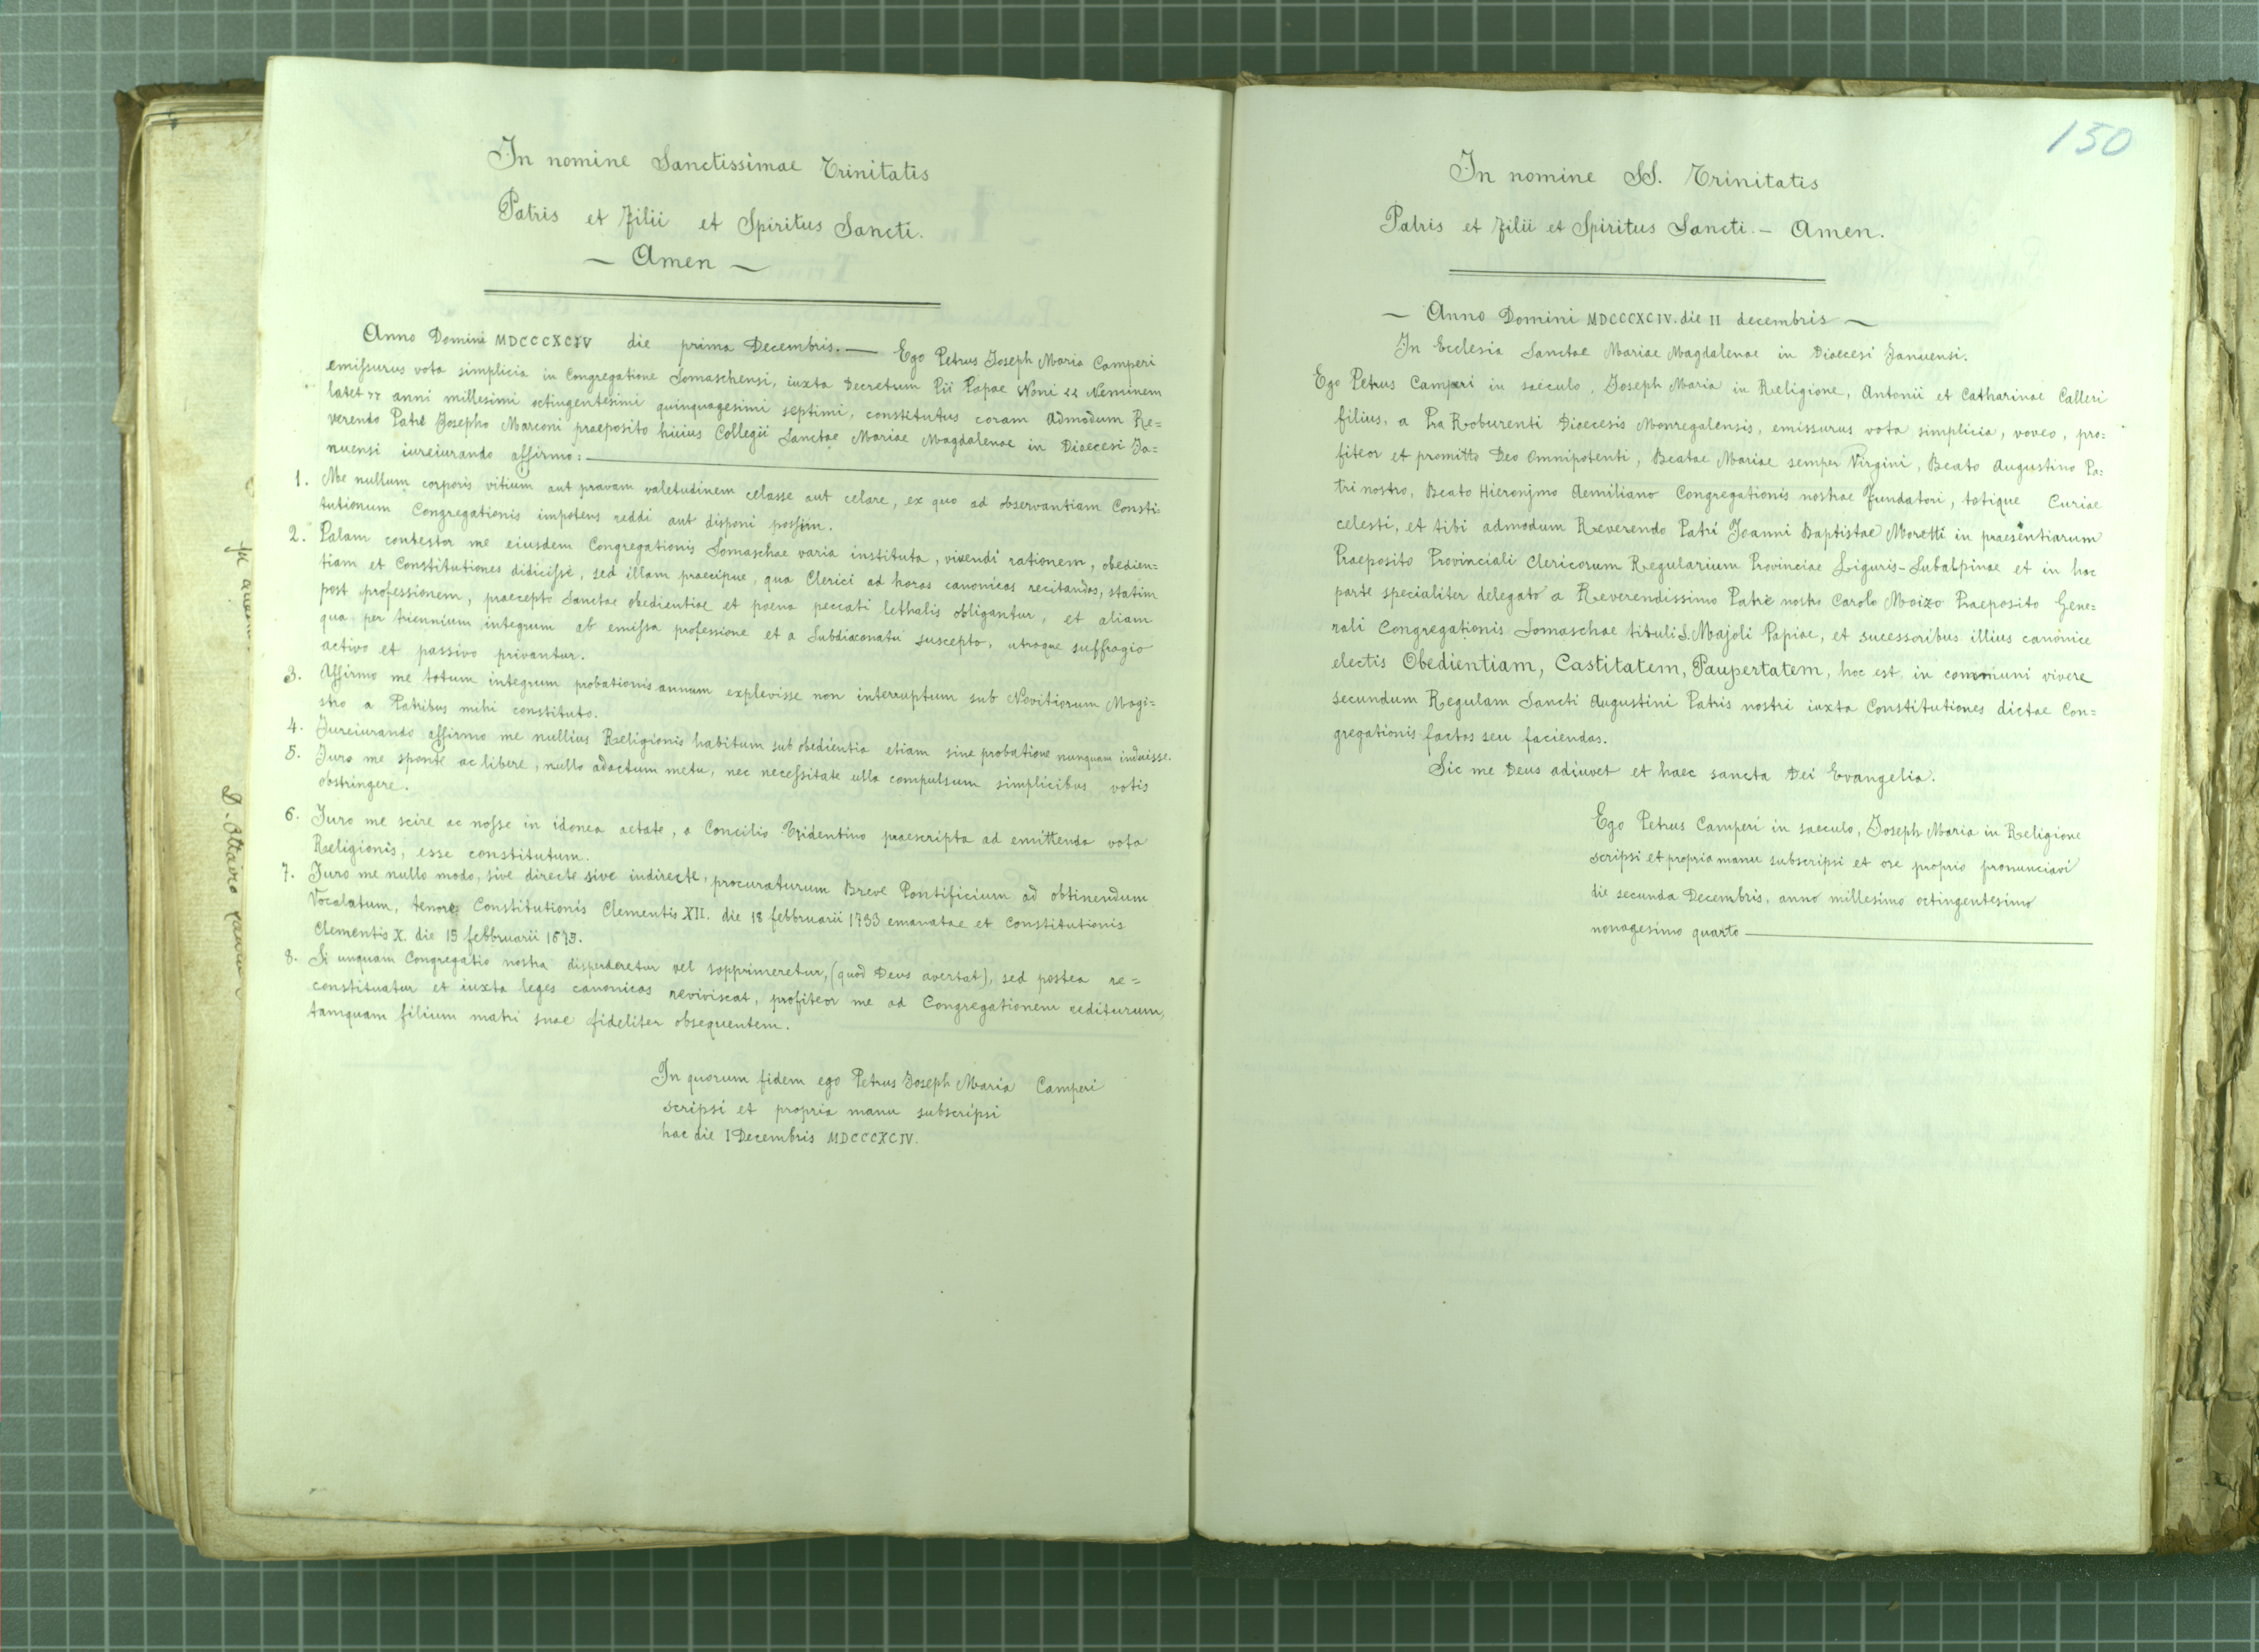 In nomine Sanctissimae Trinitatis
Patris et Filii et Spiritus Sancti.
~ Amen ~
Anno Domini MDCCCXCIV die prima Decembris. — Ego Petrus Joseph Maria Camperi
emissurus vota simplicia in Congregatione Somaschensi, iuxta Decretum Pii Papae Noni "Neminem
latet" anni millesimi octingentesimi quinquagesimi septimi, constitutus coram Admodum Re=
verendo Patre Josepho Marconi praeposito huius Collegii Sanctae Mariae Magdalenae in Dioecesi Ja=
nuensi iureiurando affirmo: —
1. Me nullum corporis vitium aut pravam valetudinem celasse aut celare, ex quo ad observantiam Consti=
tutionum Congregationis impotens reddi aut disponi possim.
2. Palam contestor me eiusdem Congregationis Somaschae varia instituta, vivendi rationem, obedien=
tiam et Constitutiones didicisse, sed illam praecipue, qua Clerici ad horas canonicas recitandas, statim
post professionem, praecepto Sanctae obedientiae et poena peccati lethalis obligantur, et aliam
qua per triennium integrum ab emissa professione et a Subdiaconatu suscepto, utroque suffragio
activo et passivo privantur.
3. Affirmo me totum integrum probationis annum explevisse non interruptum sub Novitiorum Magi=
stro a Patribus mihi constituto.
4. Jureiurando affirmo me nullius Religionis habitum sub obedientia etiam sine probatione nunquam induisse.
5. Juro me sponte ac libere, nullo adactum metu, nec necessitate ulla compulsum simplicibus votis
obstringere.
6. Juro me scire ac nosse in idonea aetate, a Concilio Tridentino praescripta ad emittenda vota
Religionis, esse constitutum.
7. Juro me nullo modo, sive directe sive indirecte, procuraturum Breve Pontificium ad obtinendum
Vocalatum, tenore Constitutionis Clementis XII. die 18 febbruarii 1733 emanatae et Constitutionis
Clementis X. die 15 febbruarii 1675.
8. Si unquam Congregatio nostra disperderetur vel sopprimeretur, (quod Deus avertat), sed postea re=
constituatur et iuxta leges canonicas reviviscat, profiteor me ad Congregationem rediturum,
tamquam filium matri suae fideliter obsequentem.
In quorum fidem ego Petrus Joseph Maria Camperi
scripsi et propria manu subscripsi
hac die I Decembris MDCCCXCIV.
D. Ottavio
150
In nomine SS. Trinitatis
Patris et Filii et Spiritus Sancti. – Amen.
~ Anno Domini MDCCCXCIV. die II decembris ~
In Ecclesia Sanctae Mariae Magdalenae in Dioecesi Januensi.
Ego Petrus Camperi in saeculo, Joseph Maria in Religione, Antonii et Catharinae Calleri
filius, a Pra Roburenti Dioecesis Monregalensis, emissurus vota simplicia, voveo, pro=
fiteor et promitto Deo Omnipotenti, Beatae Mariae semper Virgini, Beato Augustino Pa=
tri nostro, Beato Hieronymo Aemiliano Congregationis nostrae Fundatori, totique Curiae
celesti, et tibi admodum Reverendo Patri Joanni Baptistae Moretti in praesentiarum
Praeposito Provinciali Clericorum Regularium Provinciae Liguris-Subalpinae et in hac
parte specialiter delegato a Reverendissimo Patre nostro Carolo Moizo Praeposito Gene=
rali Congregationis Somaschae tituli S. Majoli Papiae, et sucessoribus illius canonice
electis Obedientiam, Castitatem, Paupertatem, hoc est in communi vivere
secundum Regulam Sancti Augustini Patris nostri iuxta Constitutiones dictae Con=
gregationis factas seu faciendas.
Sic me Deus adiuvet et haec sancta Dei Evangelia.
Ego Petrus Camperi in saeculo, Joseph Maria in Religione
scripsi et propria manu subscripsi et ore proprio pronunciavi
die secunda Decembris, anno millesimo octingentesimo
nonagesimo quarto —